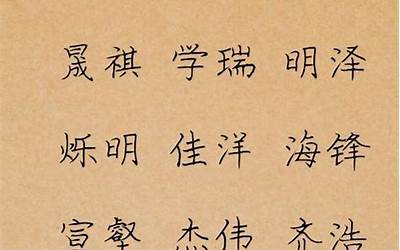 晟祺 学瑞 明泽
烁明 佳洋 海锋
宣壑 杰伟 齐浩